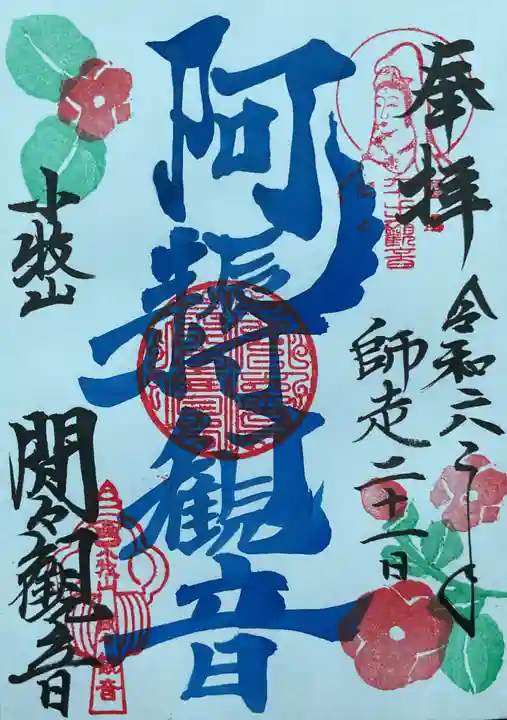 奉拝
令和六年
師走二十一日
阿耨観音
小牧山
間々観音